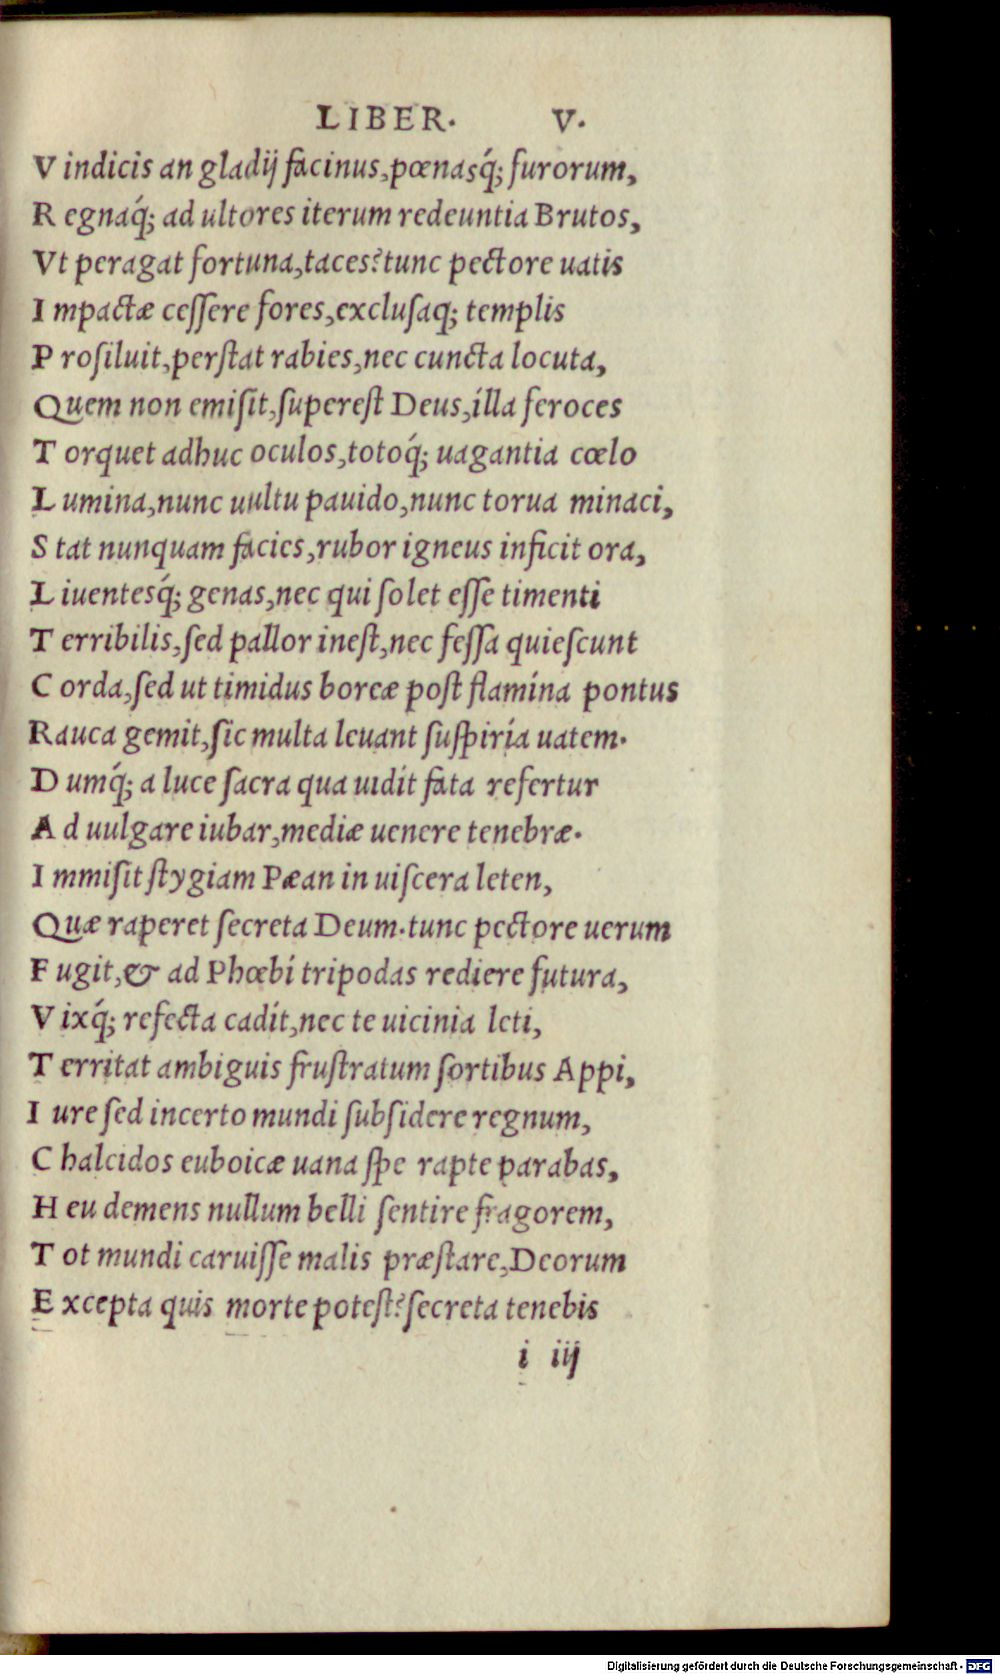 LIBER. V.
V indicis an gladij facinus, pœnasq́; furorum,
R egnaq́; ad ultores iterum redeuntia Brutos,
Vt peragat fortuna, taces? tunc pectore uatis
I mpactæ cessere fores, exclusaq; templis
P rosiluit, perstat rabies, nec cuncta locuta,
Quem non emisit, superest Deus, illa feroces
T orquet adhuc oculos, totoq́; uagantia cœlo
L umina, nunc uultu pauido, nunc torua minaci,
S tat nunquam facies, rubor igneus inficit ora,
L iuentesq́; genas, nec qui solet esse timenti
T erribilis, sed pallor inest, nec fessa quiescunt
C orda, sed ut timidus boreæ post flamina pontus
Rauca gemit, sic multa leuant suspiria uatem.
D umq́; a luce sacra qua uidit fata refertur
A d uulgare iubar, mediæ uenere tenebræ.
I mmisit stygiam Pæan in uiscera leten,
Quæ raperet secreta Deum. tunc pectore uerum
F ugit, & ad Phœbi tripodas rediere futura,
V ixq́; refecta cadit, nec te uicinia leti,
T erritat ambiguis frustratum sortibus Appi,
I ure sed incerto mundi subsidere regnum,
C halcidos euboicæ uana spe rapte parabas,
H eu demens nullum belli sentire fragorem,
T ot mundi caruisse malis præstare, Deorum
E xcepta quis morte potest? secreta tenebis
i iij
Digitalisierung gefördert durch die Deutsche Forschungsgemeinschaft - DFG